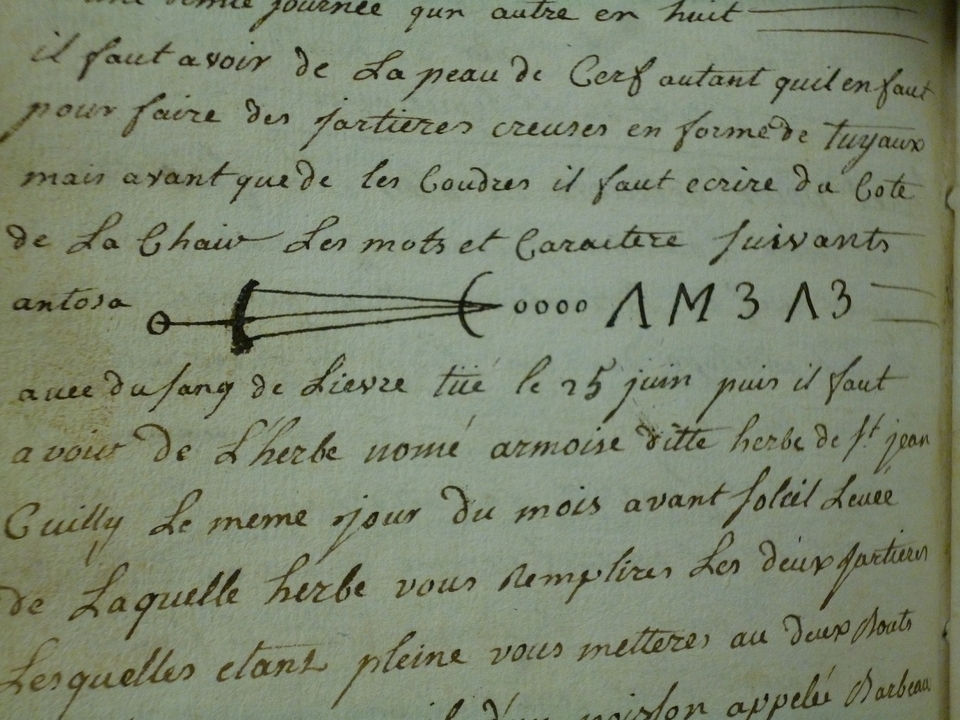 une demie journee qun autre en huit
il faut avoir de La peau de Cerf autant quil en faut
pour faire des jartieres creuses en forme de tuyaux
mais avant que de les Coudres il faut ecrire du Cote
de La Chair Les mots et Caractere suivants
antosa oooo Λ M 3 Λ 3
avec du sang de Lievre tüé le 25 juin puis il faut
avoir de L'herbe nomé armoise ditte herbe de st jean
Cuilly Le meme jour du mois avant soleil Levée
de Laquelle herbe vous Remplires Les deux jartieres
Lesquelles etant pleine vous metteres au deux Bouts
d'un poisson appelé Barbeau